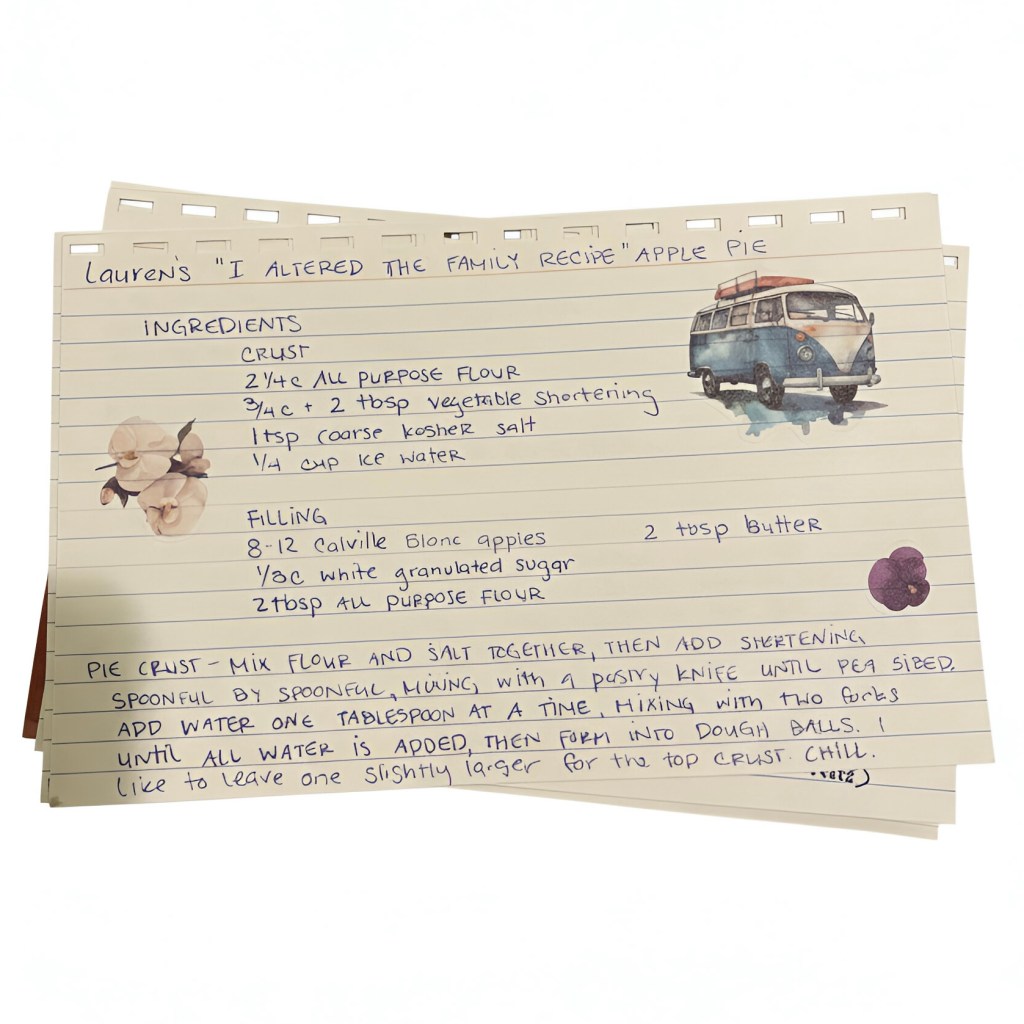 Lauren's "I ALTERED THE FAMILY RECIPE" APPLE PIE
INGREDIENTS
CRUST
2 1/4c ALL PURPOSE FLOUR
3/4c + 2 tbsp vegetable shortening
1 tsp coarse kosher salt
1/4 cup ice water
FILLING
8-12 Calville Blanc apples
2 tbsp butter
1/3c white granulated sugar
2 tbsp ALL PURPOSE FLOUR
PIE CRUST - MIX FLOUR AND SALT TOGETHER, THEN ADD SHORTENING
SPOONFUL BY SPOONFUL, MIXING with a pastry KNIFE UNTIL PEA SIZED.
ADD WATER ONE TABLESPOON AT A TIME, MIXING WITH two forks
UNTIL ALL WATER IS ADDED, THEN FORM INTO DOUGH BALLS. I
like to leave one slightly larger for the top CRUST. CHILL.